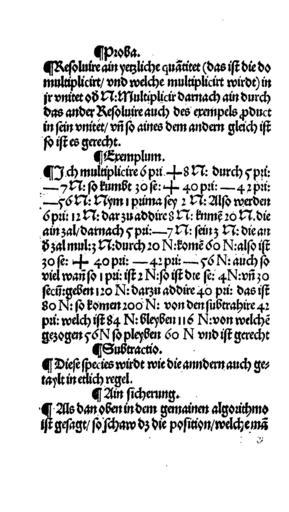 ¶Proba.
¶Resoluire ain yetzliche quãtitet (das ist die do
multiplicirt/ vnd welche multiplicirt wirdt) in
jr vnitet oð N: Multiplicir darnach ain durch
das ander Resoluire auch des exempels ꝓduct
in sein vnitet/ vñ so aines dem andern gleich ist
so ist es gerecht.
¶Exemplum.
¶Ich multiplicire 6 pri. + 8 N: durch 5 pri:
— 7 N: so kumbt 30 se: + 40 pri: — 42 pri:
— 56 N: Nym 1 prima sey 2 N: Also werden
6 pri: 12 N: dar zu addire 8 N: kumẽ 20 N. die
ain zal/ darnach 5 pri: — 7 N: sein 3 N: die an
ð zal mul: 3 N: durch 20 N: komẽ 60 N: also ist
30 se: + 40 pri: — 42 pri: — 56 N: auch so
viel wañ so 1 pri: ist 2 N: so ist die se: 4 N: vñ 30
secũ: geben 120 N: darzu addire 40 pri: das ist
80 N: so komen 200 N: von den subtrahire 42
pri: welch ist 84 N: bleyben 116 N: von welchẽ
gezogen 56 N so pleyben 60 N vnd ist gerecht
¶Subtractio.
¶Diese species wirdt wie die anndern auch ge-
taylt in etlich regel.
¶Ain sicherung.
¶Als dan oben in dem gemainen algorithmo
ist gesagt/ so schaw dz die position/ welche mã